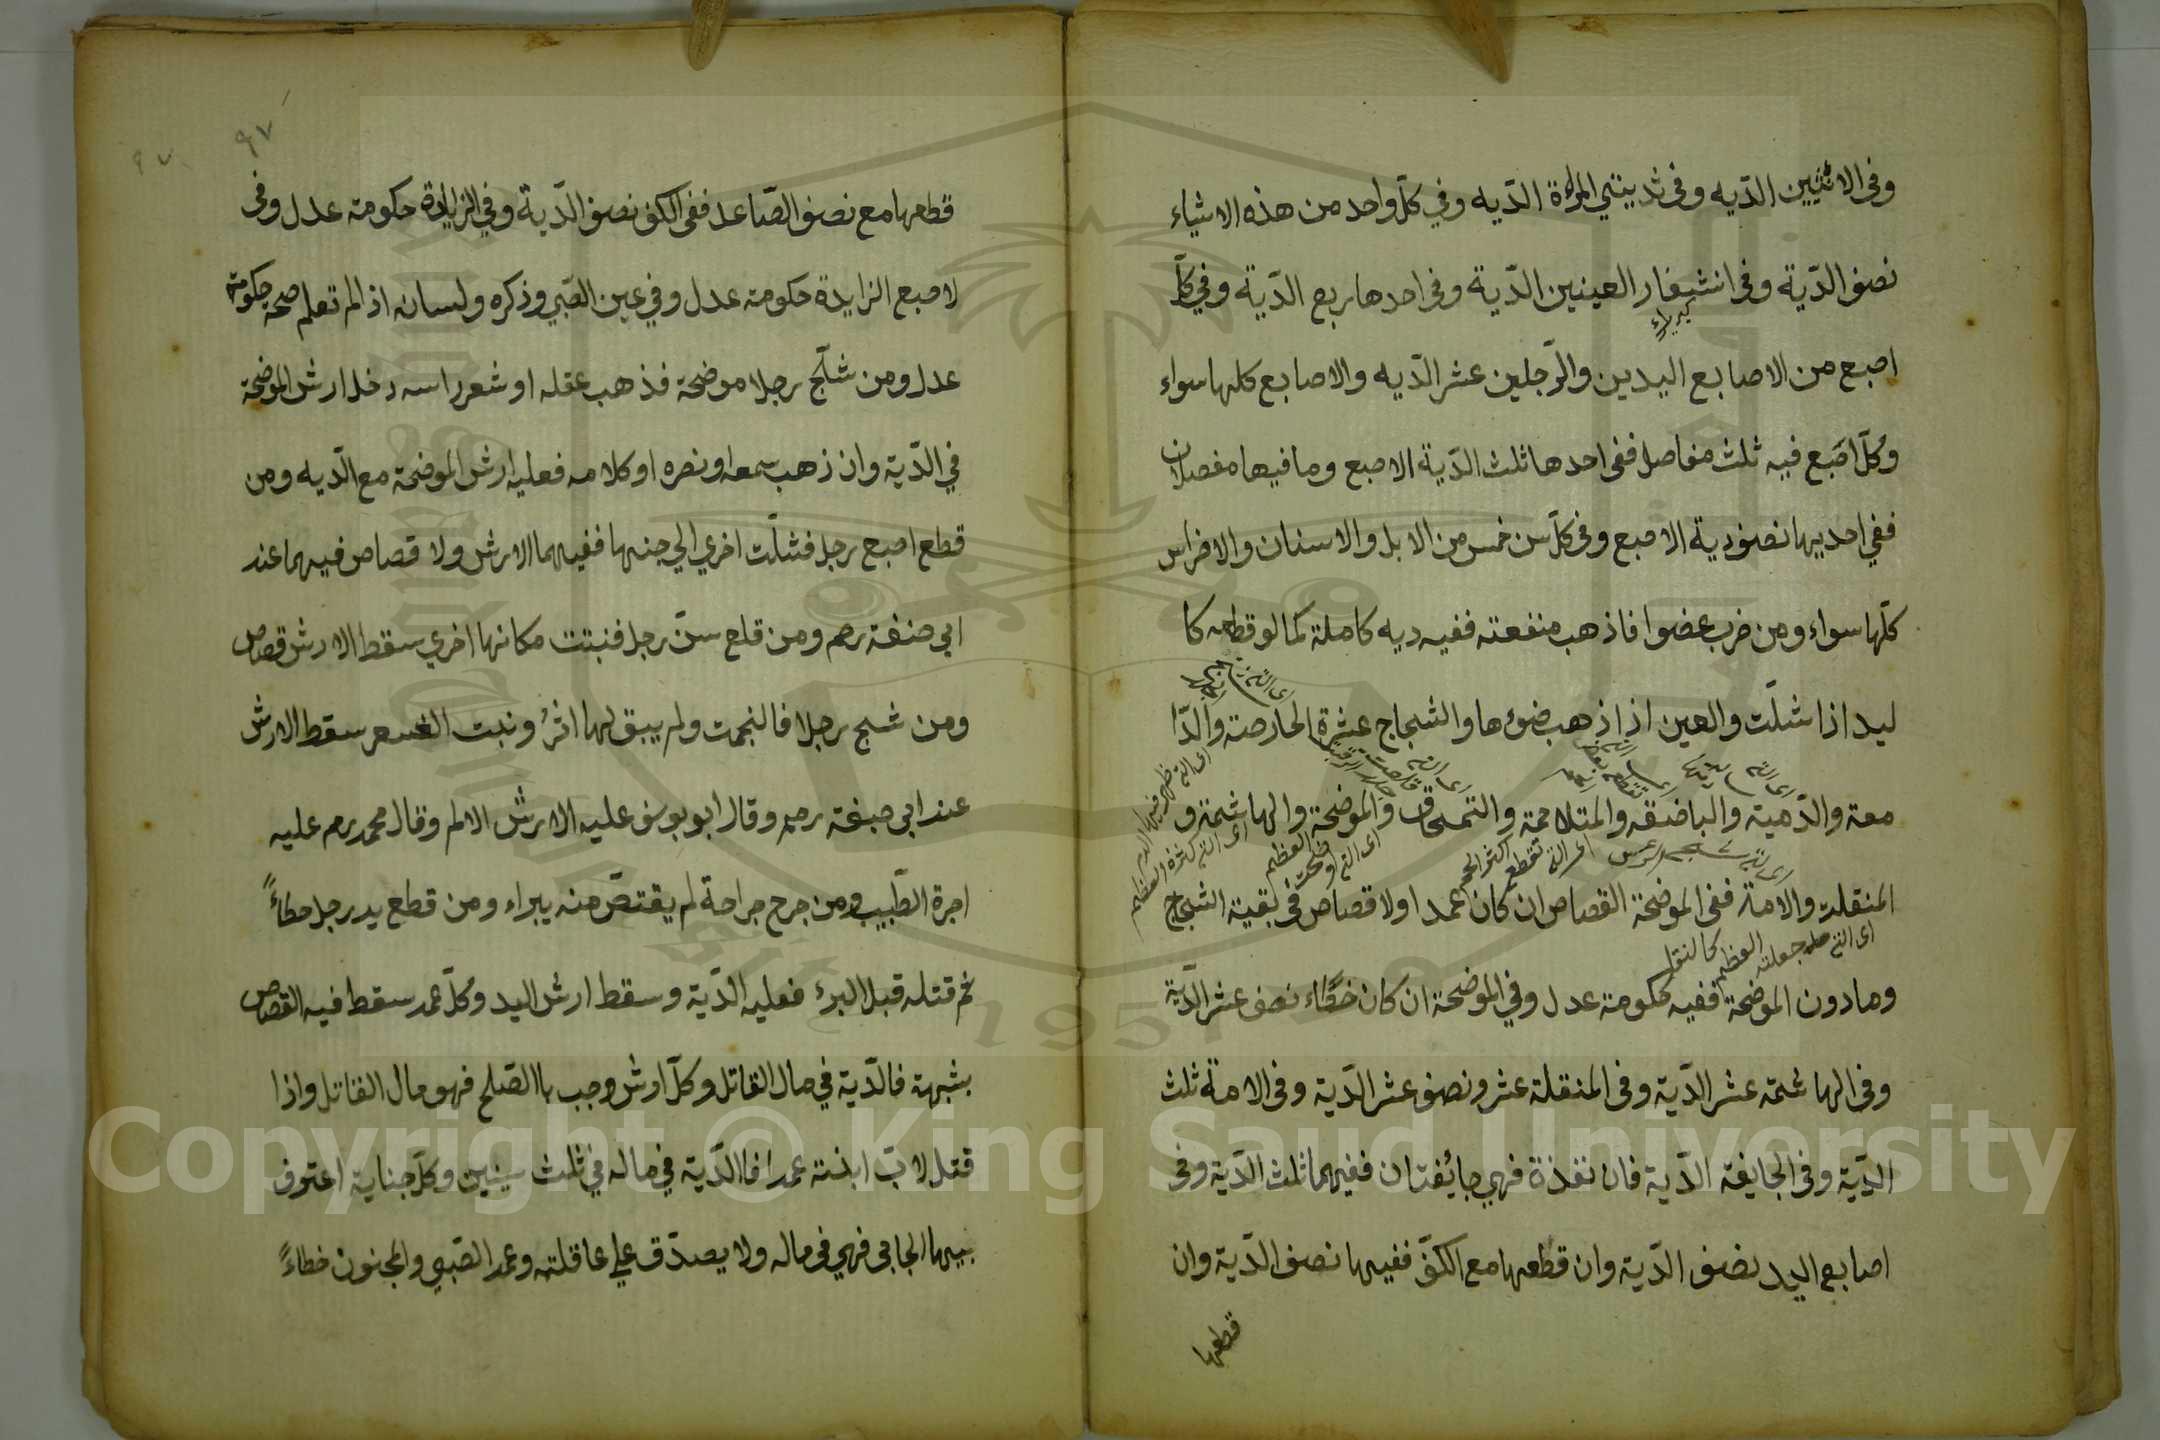 وفى الانثيين الدّيه وفى ثديتي المراة الدّيه وفي كلّ واحد من هذه الاشياء
نصف الدّية وفى اشفار العينين الدّية وفى احدها ربع الدّية وفي كلّ
اصبع من الاصابع اليدين والرّجلين عشر الدّيه والاصابع كلها سواء
وكلّ اصبع فيه ثلث مفاصل ففى احدها ثلث الدّية الاصبع وما فيها مفصلان
ففي احديها نصف دية الاصبع وفى كلّ سن خمس من الابل والاسنان والاضراس
كلّها سواء ومن ضرب عضوا فاذهب منفعته ففيه ديه كاملة كما لو قطعه كا
ليد اذا شلّت والعين اذا ذهب ضوءها والشجاج عشرة الحارصة والدّا
معة والدّمية والباضعة والمتلاحمة والسمحاق والموضحة والهاشمة و
المنقلة والامة ففى الموضحة القصاص ان كان عمدا ولا قصاص فى بقية الشجاج
اى التى جعلت العظم كالنقل
وما دون الموضحة ففيه حكومة عدل وفي الموضحة ان كان خطاء نصف عشر الدّية
وفى الهاشمة عشر الدّية وفى المنقلة عشر ونصف عشر الدّية وفى الامة ثلث
الدّية وفى الجايفة الدّية فان نفذة فهي جائفتان ففيهما ثلث الدّية وفى
اصابع اليد نصف الدّية وان قطعها مع الكفّ ففيها نصف الدّية وان
قطعها
٩٧
٩٧
قطعها مع نصف الصّاعد ففى الكف نصف الدّية وفي الزايدة حكومة عدل وفى
لاصبع الزايدة حكومة عدل وفي عين الصّبي وذكره ولسانه اذا لم تعلم صحه حكومة
عدل ومن شلّج رجلا موضحة فذهب عقله او شعر راسه دخل ارش الموضحة
في الدّية وان ذهب سمعه او نصره او كلامه فعليه ارش الموضحة مع الدّيه ومن
قطع اصبع رجل فشلّت اخري الي جنبها ففيهما الارش ولا قصاص فيهما عند
ابي حنفة رحم ومن قلع سنّ رجل فنبتت مكانها اخري سقط الارش قصاص
ومن شج رجلا فالنجمت ولم يبق لها اثرٌ ونبت الشعر سقط الارش
عند ابي حنيفة رحم وقال ابو يوسف عليه الارش الالم وقال محمد رحم عليه
اجرة الطّبيب ومن جرح جراحة لم يقتصّ منه يبراء ومن قطع يد رجل خطاءً
ثم قتله قبل البرء فعليه الدّية وسقط ارش اليد وكلّ عمد سقط فيه القصاص
بشبهة فالدّية في مال القاتل وكلّ ارش وجب باالصّلح فهو مال القاتل واذا
قتل لابّ ابنته عمدا فاالدّية في ماله في ثلث سينين وكلّ جناية اعترف
بيها الجانى فهي فى ماله ولا يصدّق علي عاقلته وعمد الصّبي والمجنون خطاءً
Copyright © King Saud University
1957